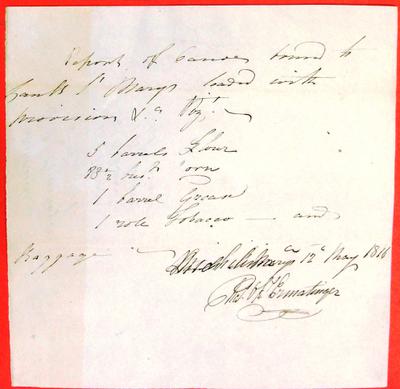 Report of Canoes bound to
Saults St Marys loaded with
Provision &c Vizt
3 barrels Flour
bush Corn
1 barrel Grease
1 role Tobacco — and
Baggage
Michilimackinac 12th May 1816
Ermatinger